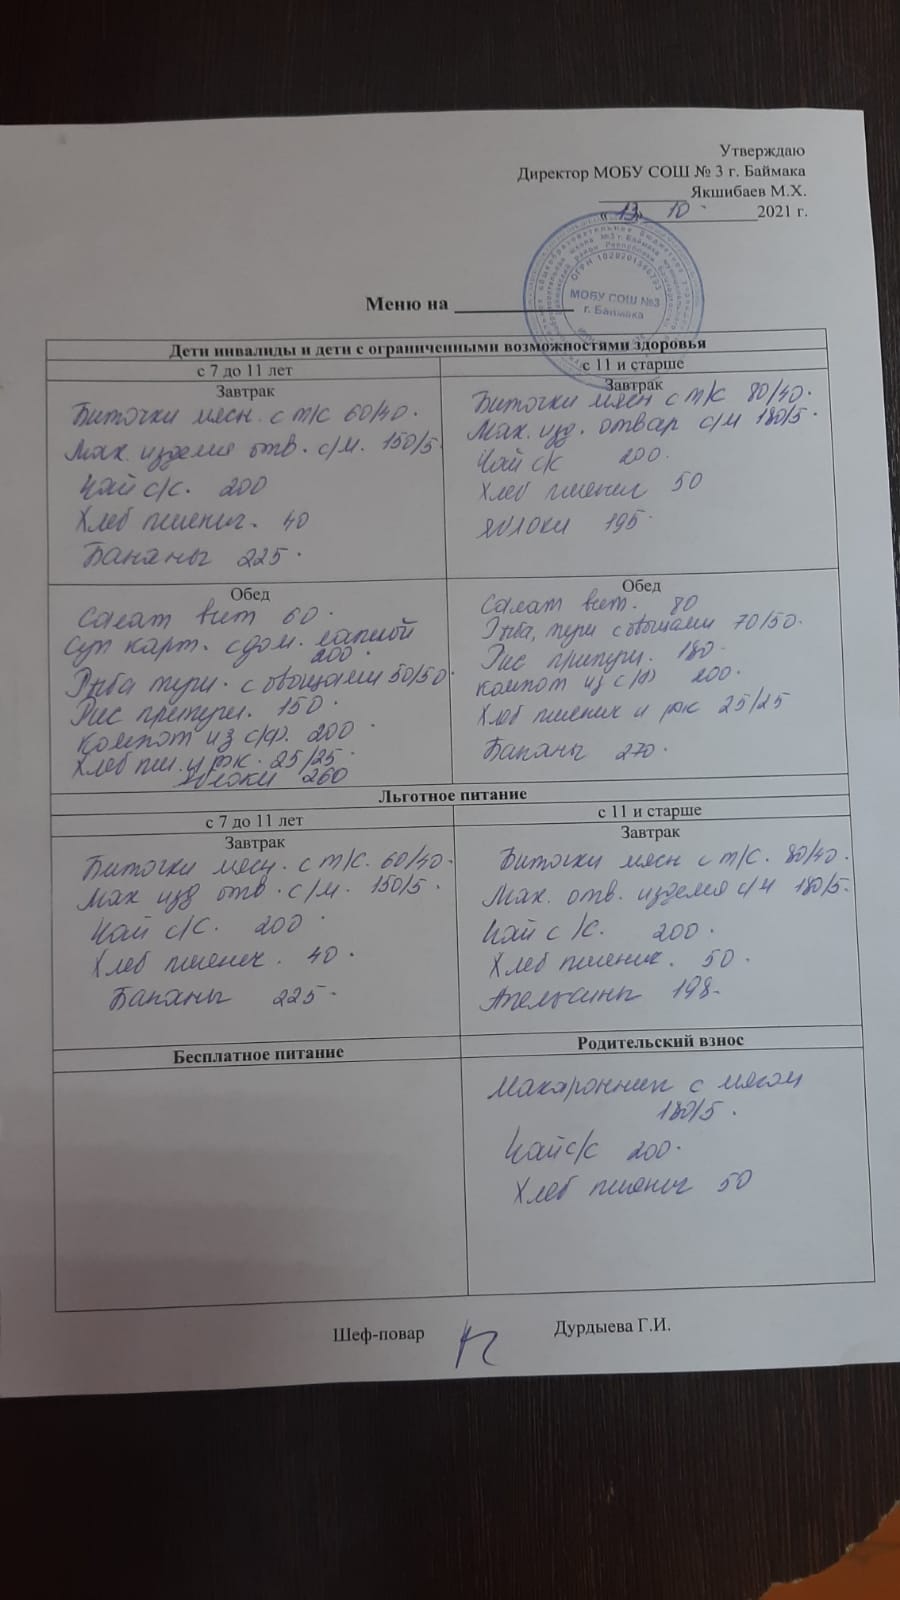 Утверждаю
Директор МОБУ СОШ № 3 г. Баймака
Якшибаев М.Х.
«13» 10 2021 г.
ОГРН
МОБУ СОШ №3
г. Баймака
Меню на
Дети инвалиды и дети с ограниченными возможностями здоровья
с 7 до 11 лет
Завтрак
Биточки мясн. с т/с 60/40.
Мак. изделия отв. с/м. 150/5.
Чай с/с. 200
Хлеб пшенич. 40
Бананы 225.
с 11 и старше
Завтрак
Биточки мясн с т/с 80/40.
Мак. изд. отвар с/м 180/5.
Чай с/с 200.
Хлеб пшенич 50
Яблоки 195.
Обед
Салат вит 60.
Суп карт. с дом. лапшой
200.
Рыба туш. с овощами 50/50.
Рис припущ. 150.
Компот из с/ф. 200.
Хлеб пш. и рж. 25/25.
Яблоки 260
Обед
Салат вит. 80
Рыба, туш с овощами 70/50.
Рис припущ. 180.
Компот из с/ф 200.
Хлеб пшенич и рж 25/25
Бананы 270.
Льготное питание
с 7 до 11 лет
Завтрак
Биточки мясн. с т/с. 60/40.
Мак изд отв. с/м. 150/5.
Чай с/с. 200.
Хлеб пшенич. 40.
Бананы 225.
с 11 и старше
Завтрак
Биточки мясн с т/с. 80/40.
Мак. отв. изделия с/м 180/5.
Чай с/с. 200.
Хлеб пшенич. 50.
Апельсины 198.
Бесплатное питание
Родительский взнос
Макаронник с мясом
180/5.
Чай с/с 200.
Хлеб пшенич 50
Шеф-повар
Дурдыева Г.И.